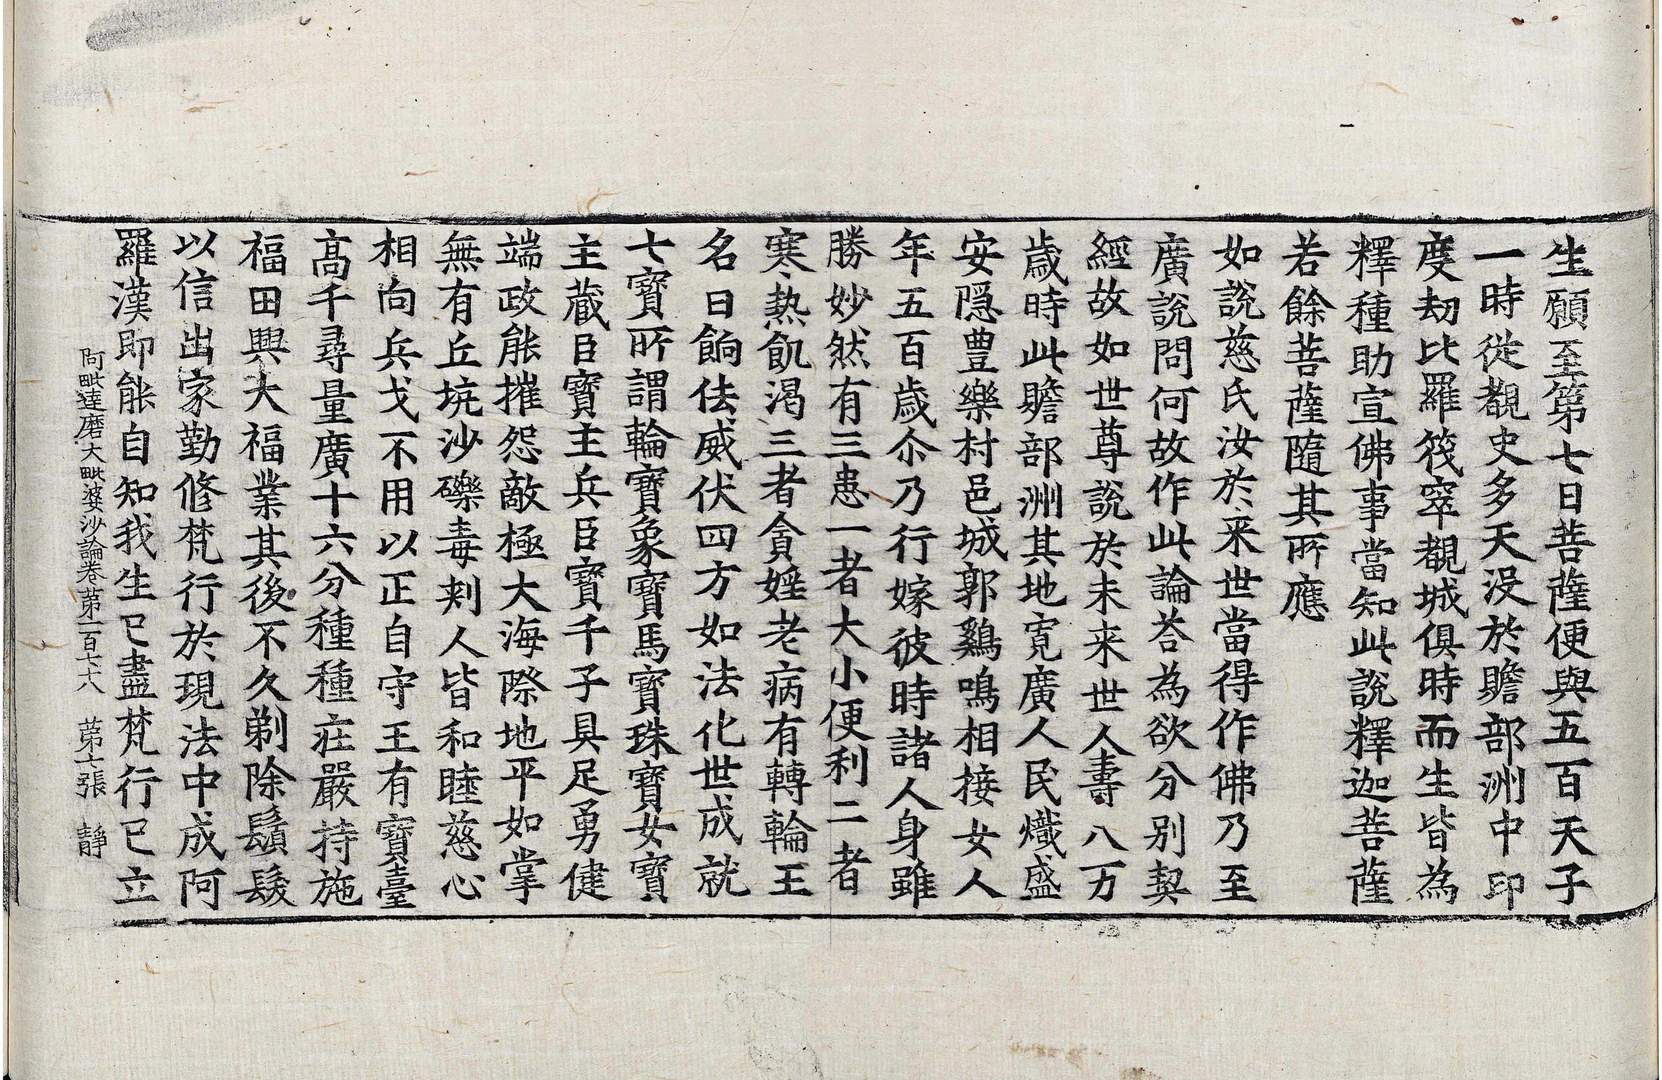 生願至第七日菩薩便與五百天子
一時從覩史多天没於贍部洲中印
度劫比羅筏窣覩城俱時而生皆為
釋種助宣佛事當知此說釋迦菩薩
若餘菩薩隨其所應
如說慈氏汝於来世當得作佛乃至
廣説問何故作此論荅為欲分别契
經故如世尊說於未来世人壽八万
歳時此贍部洲其地寛廣人民熾盛
安隱豊樂村邑城郭鷄鳴相接女人
年五百歳尒乃行嫁彼時諸人身雖
勝妙然有三患一者大小便利二者
寒熱飢渇三者貪婬老病有轉輪王
名曰餉佉威伏四方如法化世成就
七寶所謂輪寶象寶馬寶珠寶女寶
主蔵臣寶主兵臣寶千子具足勇健
端政能摧怨敵極大海際地平如掌
無有丘坑沙礫毒刺人皆和睦慈心
相向兵戈不用以正自守王有寶臺
髙千尋量廣十六分種種荘嚴持施
福田興大福業其後不久剃除鬚髮
以信出家勤修梵行於現法中成阿
羅漢即能自知我生已盡梵行已立
阿毗達磨大毗婆沙論卷第一百七十八 第七張 靜